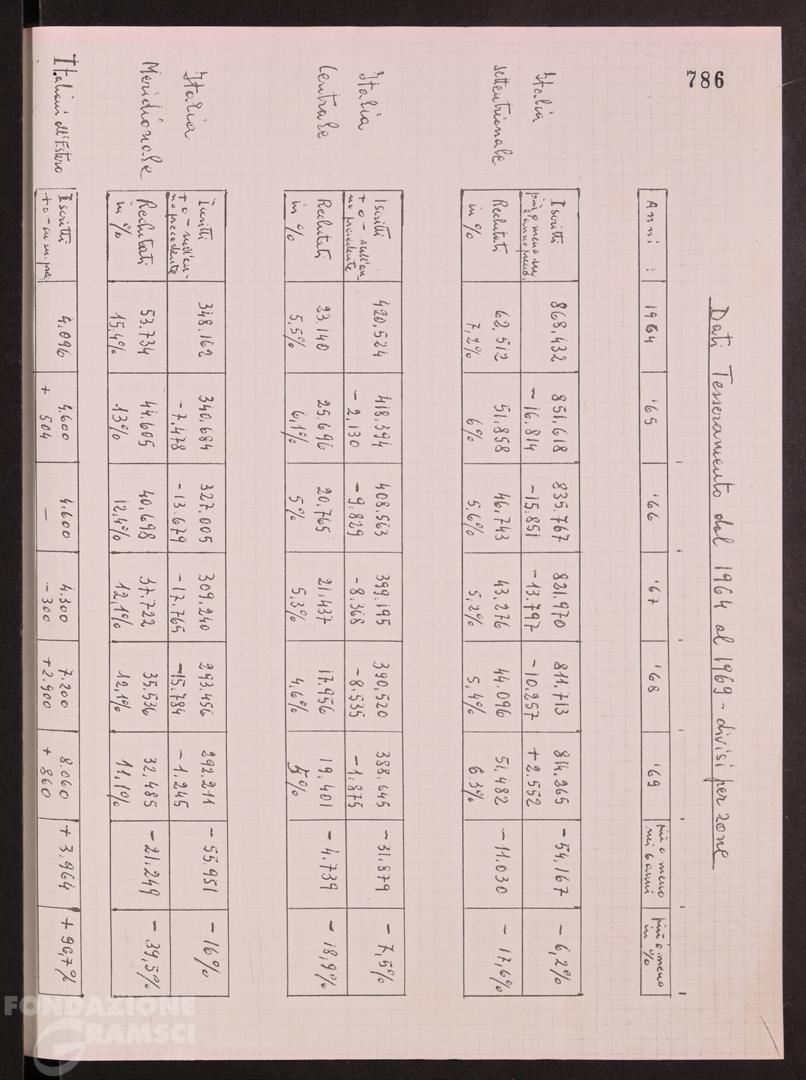 786
Dati Tesseramento dal 1964 al 1969 - divisi per zone
Anni : 1964 '65 '66 '67 '68 '69 più o meno nei 6 anni più o meno in %
Italia settentrionale
Iscritti 868,432 851,618 835,767 821,970 811,713 814,265 - 54,167 - 6,2%
più o meno su l'anno preced. - 16,814 - 15,851 - 13,797 - 10,257 + 2,552
Reclutati 62,512 51,858 46,743 43,276 44,096 51,482 - 11.030 - 17,6%
in % 7,2% 6% 5,6% 5,2% 5,4% 6.3%
Italia Centrale
Iscritti 420,524 418,394 408,563 399,195 390,520 388,645 - 31,879 - 7,5%
+ o - sull'anno precedente - 2,130 - 9.829 - 8,368 - 8,535 - 1,875
Reclutati 23.140 25.696 20,765 21,437 17,956 19,401 - 4.739 - 18,9%
in % 5,5% 6,1% 5% 5,3% 4,6% 5%
Italia Meridionale
Iscritti 348.162 340,684 327.005 309,240 293,456 292.211 - 55.951 - 16%
+ o - sull'anno precedente - 7,478 - 13.679 - 17,765 - 15,784 - 1,245
Reclutati 53.734 44.605 40,698 37.722 35.536 32,485 - 21,249 - 39,5%
in % 15,4% 13% 12,4% 12,1% 12,1% 11,1%
Italiani all'Estero
Iscritti 4,096 4,600 4.600 4.300 7.200 8.060 + 3.964 + 96,7%
+ o - su an. prec + 504 - - 300 + 2.900 + 860
FONDAZIONE
GRAMSCI